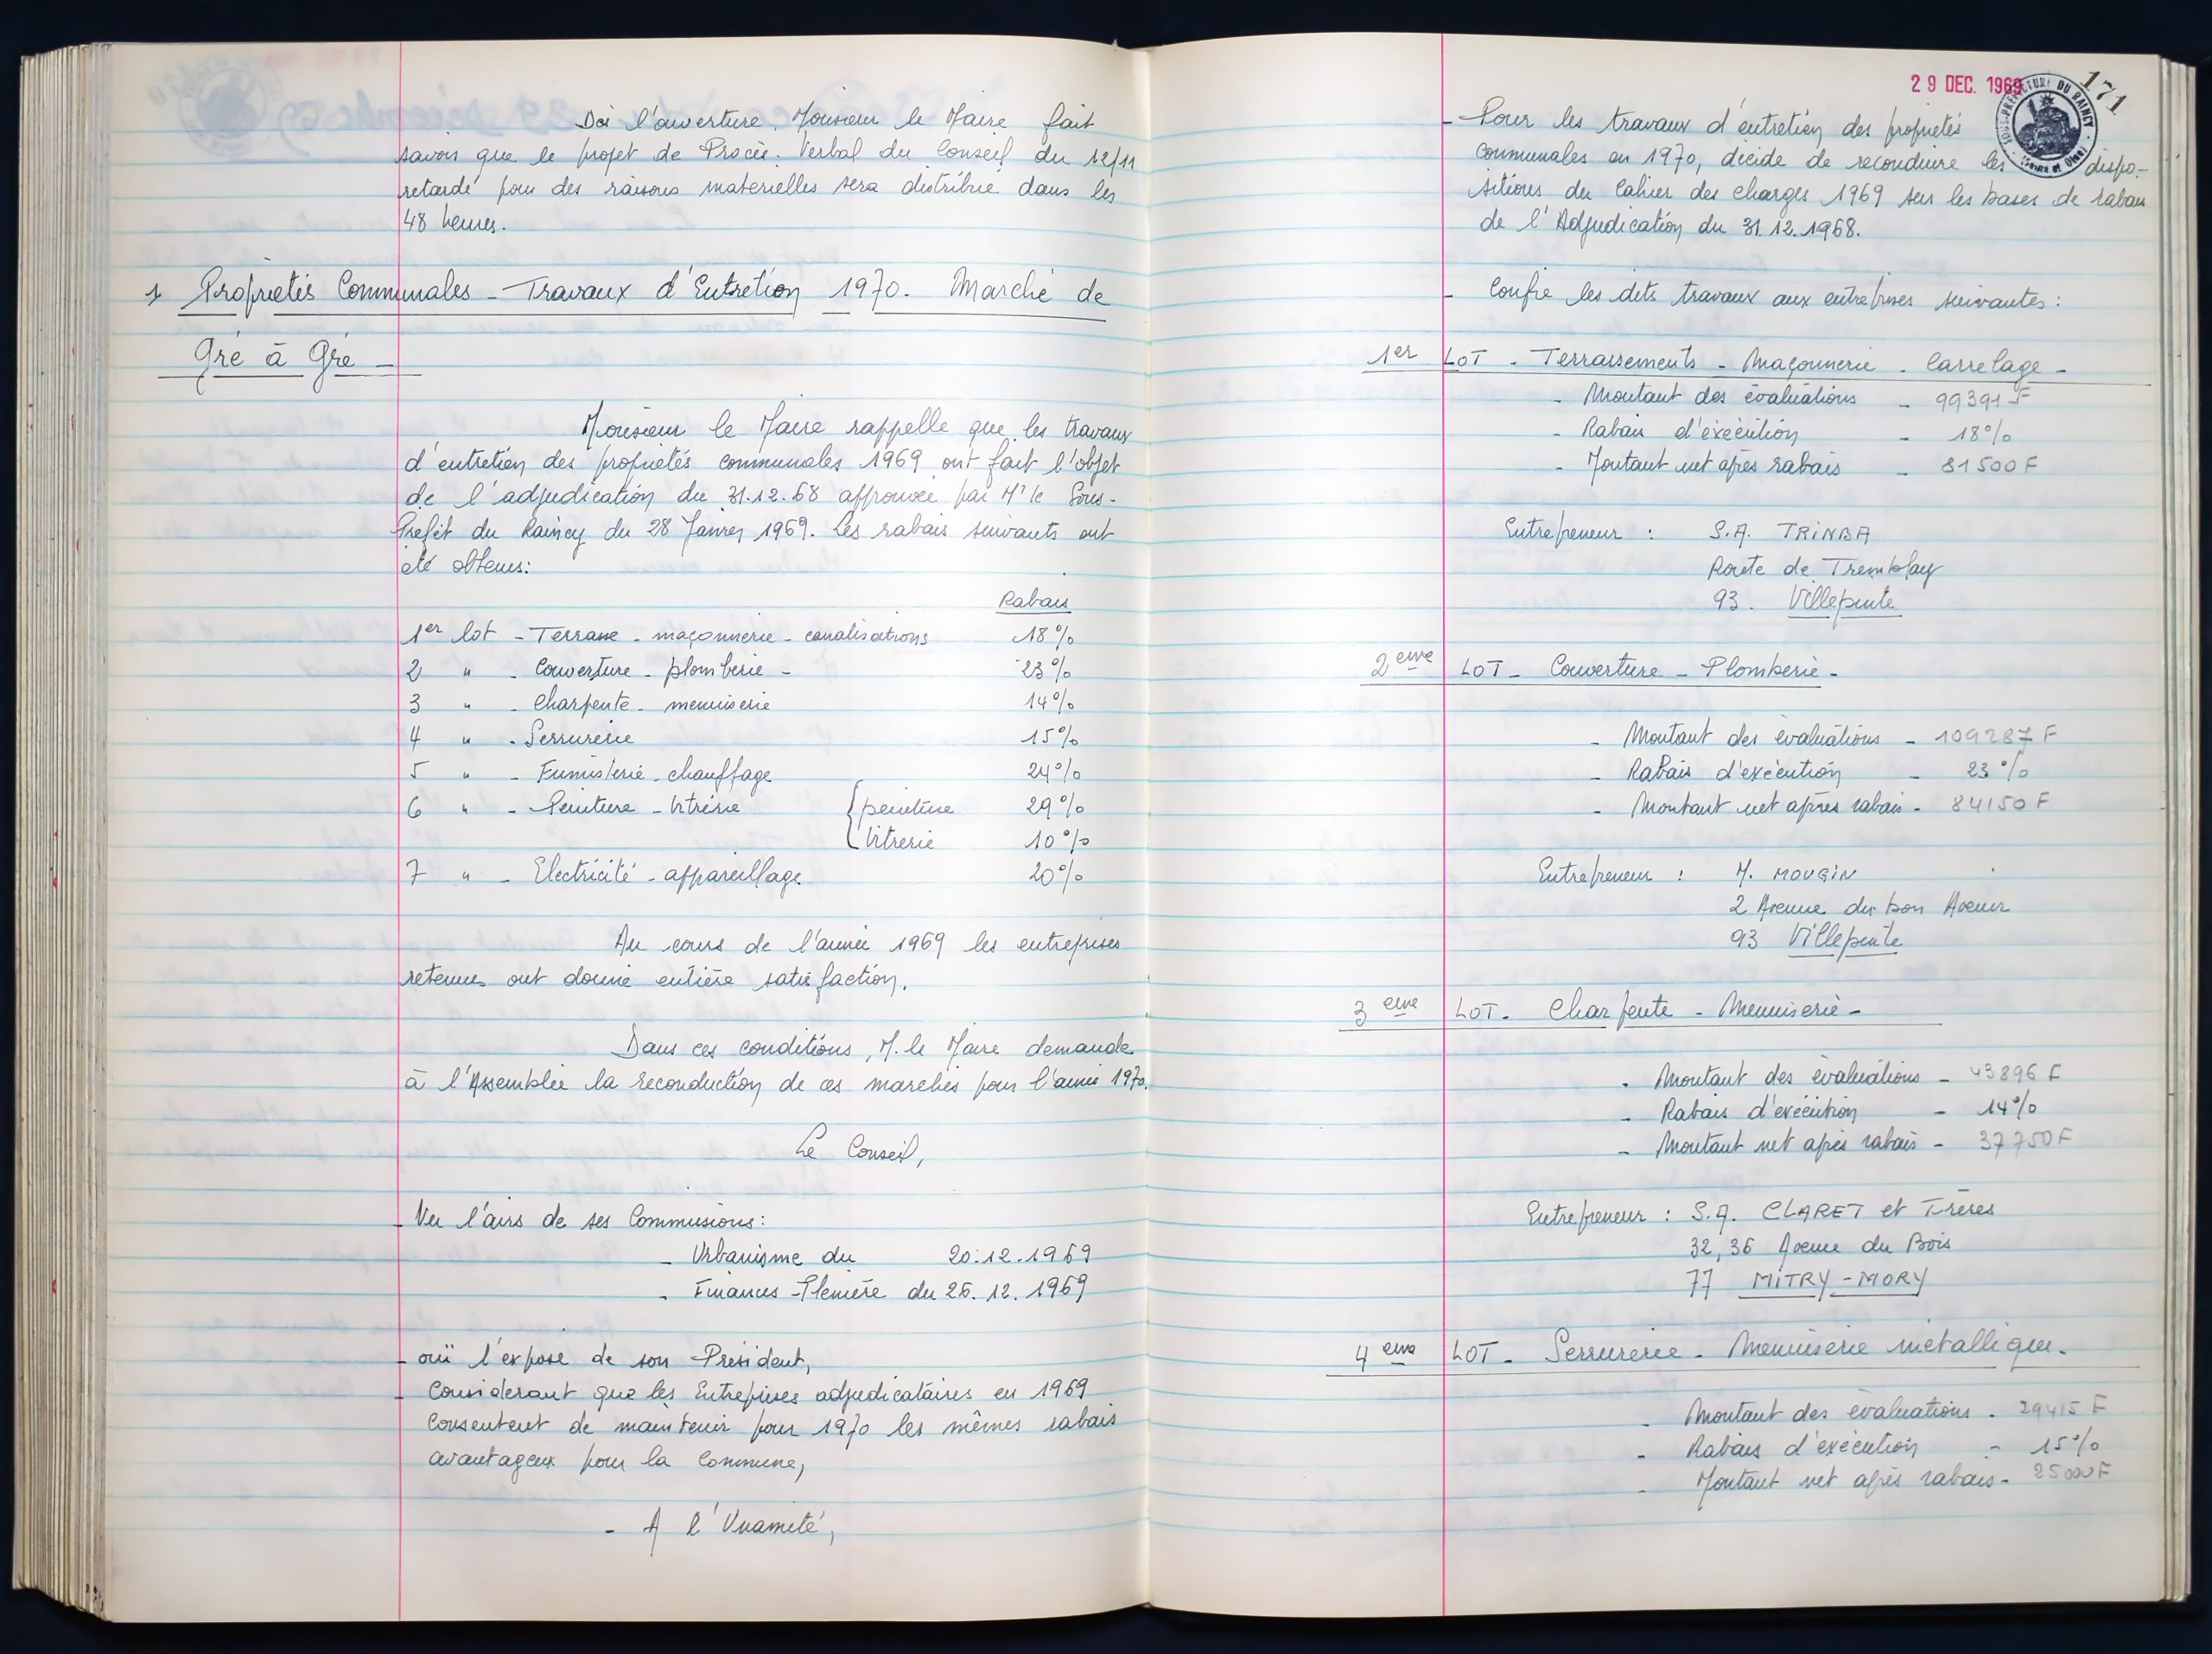 Dès l'ouverture, Monsieur le Maire fait
savoir que le projet de Procès-Verbal du Conseil du 12/11
retardé pour des raisons matérielles sera distribué dans les
48 heures.
1 Propriétés Communales - Travaux d'Entretien 1970. Marché de
Gré à Gré -
Monsieur le Maire rappelle que les travaux
d'entretien des propriétés communales 1969 ont fait l'objet
de l'adjudication du 31.12.68 approuvée par Mr le Sous-
Préfet du Raincy du 28 Janvier 1969. Les rabais suivants ont
été obtenus:
Rabais
1er lot - Terrasse - maçonnerie - canalisations 18%
2 " - Couverture - plomberie - 23%
3 " - Charpente - menuiserie 14%
4 " - Serrurerie 15%
5 " - Fumisterie - chauffage 24%
6 " - Peinture - Vitrerie { peinture 29%
Vitrerie 10%
7 " - Electricité - appareillage 20%
Au cours de l'année 1969 les entreprises
retenues ont donné entière satisfaction.
Dans ces conditions, M. le Maire demande
à l'Assemblée la reconduction de ces marchés pour l'année 1970.
Le Conseil,
- Vu l'avis de ses Commissions:
- Urbanisme du 20.12.1969
- Finances - Plénière du 26.12.1969
- ouï l'exposé de son Président,
- Considérant que les Entreprises adjudicataires en 1969
consentent de maintenir pour 1970 les mêmes rabais
avantageux pour la Commune,
- A l'Unamité,
29 DEC. 1969
171
SOUS-PRÉFECTURE DU RAINCY
(Seine et Oise)
- Pour les travaux d'entretien des propriétés
communales en 1970, décide de reconduire les dispo-
sitions du Cahier des Charges 1969 sur les bases de rabais
de l'Adjudication du 31.12.1968.
- Confie les dits travaux aux entreprises suivantes:
1er LOT - Terrassements - Maçonnerie - Carrelage -
- Montant des évaluations - 99391 F
- Rabais d'exécution - 18%
- Montant net après rabais - 81500 F
Entrepreneur : S.A. TRINBA
Route de Tremblay
93. Villepinte
2ème LOT - Couverture - Plomberie -
- Montant des évaluations - 109287 F
- Rabais d'exécution - 23%
- Montant net après rabais - 84150 F
Entrepreneur : M. MOUGIN
2 Avenue du bon Avenir
93 Villepinte
3ème LOT - Charpente - Menuiserie -
- Montant des évaluations - 43896 F
- Rabais d'exécution - 14%
- Montant net après rabais - 37750 F
Entrepreneur : S.A. CLARET et Frères
32,36 Avenue du Bois
77 MITRY-MORY
4ème LOT - Serrurerie - Menuiserie métallique -
- Montant des évaluations - 29415 F
- Rabais d'exécution - 15%
- Montant net après rabais - 25000 F